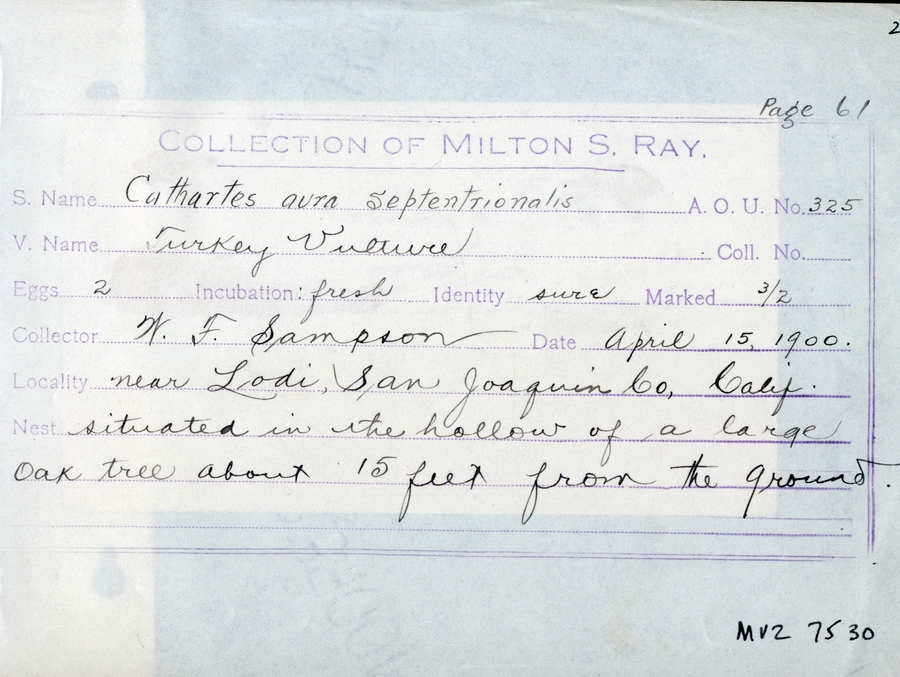 2
Page 61
COLLECTION OF MILTON S. RAY.
S. Name Cathartes aura septentrionalis A. O. U. No. 325
V. Name Turkey Vulture Coll. No.
Eggs 2 Incubation: fresh Identity sure Marked 3/2
Collector W. F. Sampson Date April 15, 1900.
Locality near Lodi, San Joaquin Co, Calif.
Nest situated in the hollow of a large
Oak tree about 15 feet from the ground.
MVZ 7530